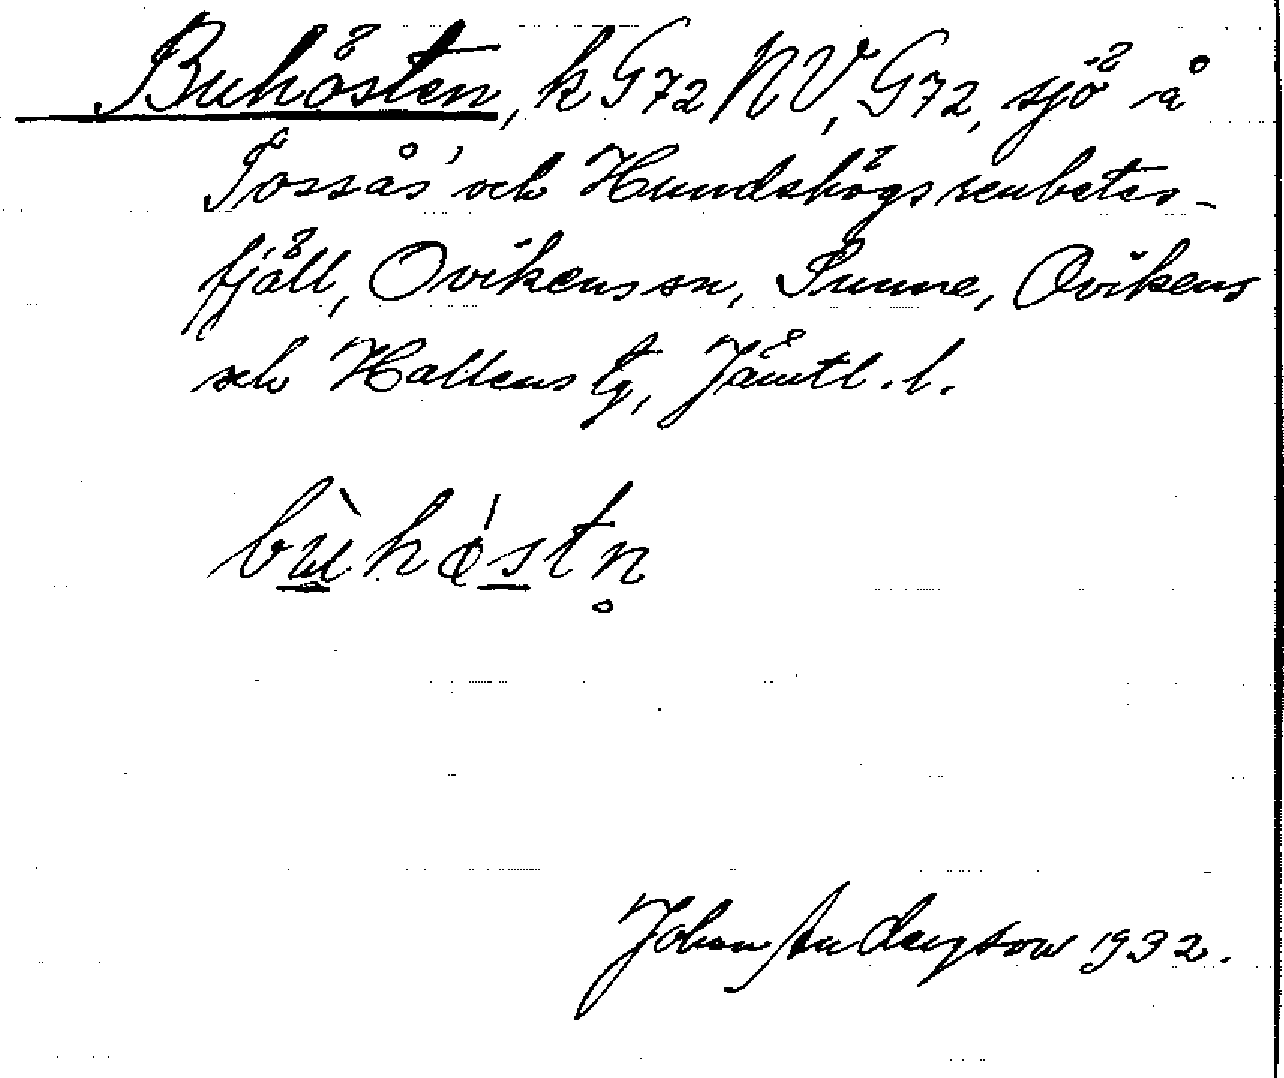 Buhösten, k G72 NV, G72, sjö å
Tossås' och Hundshögs renbetes-
fjäll, Ovikens sn, Sunne, Ovikens
och Hallens tg, Jämtl. l.
bùhǿstn̥
Johan Anderzson 1932.